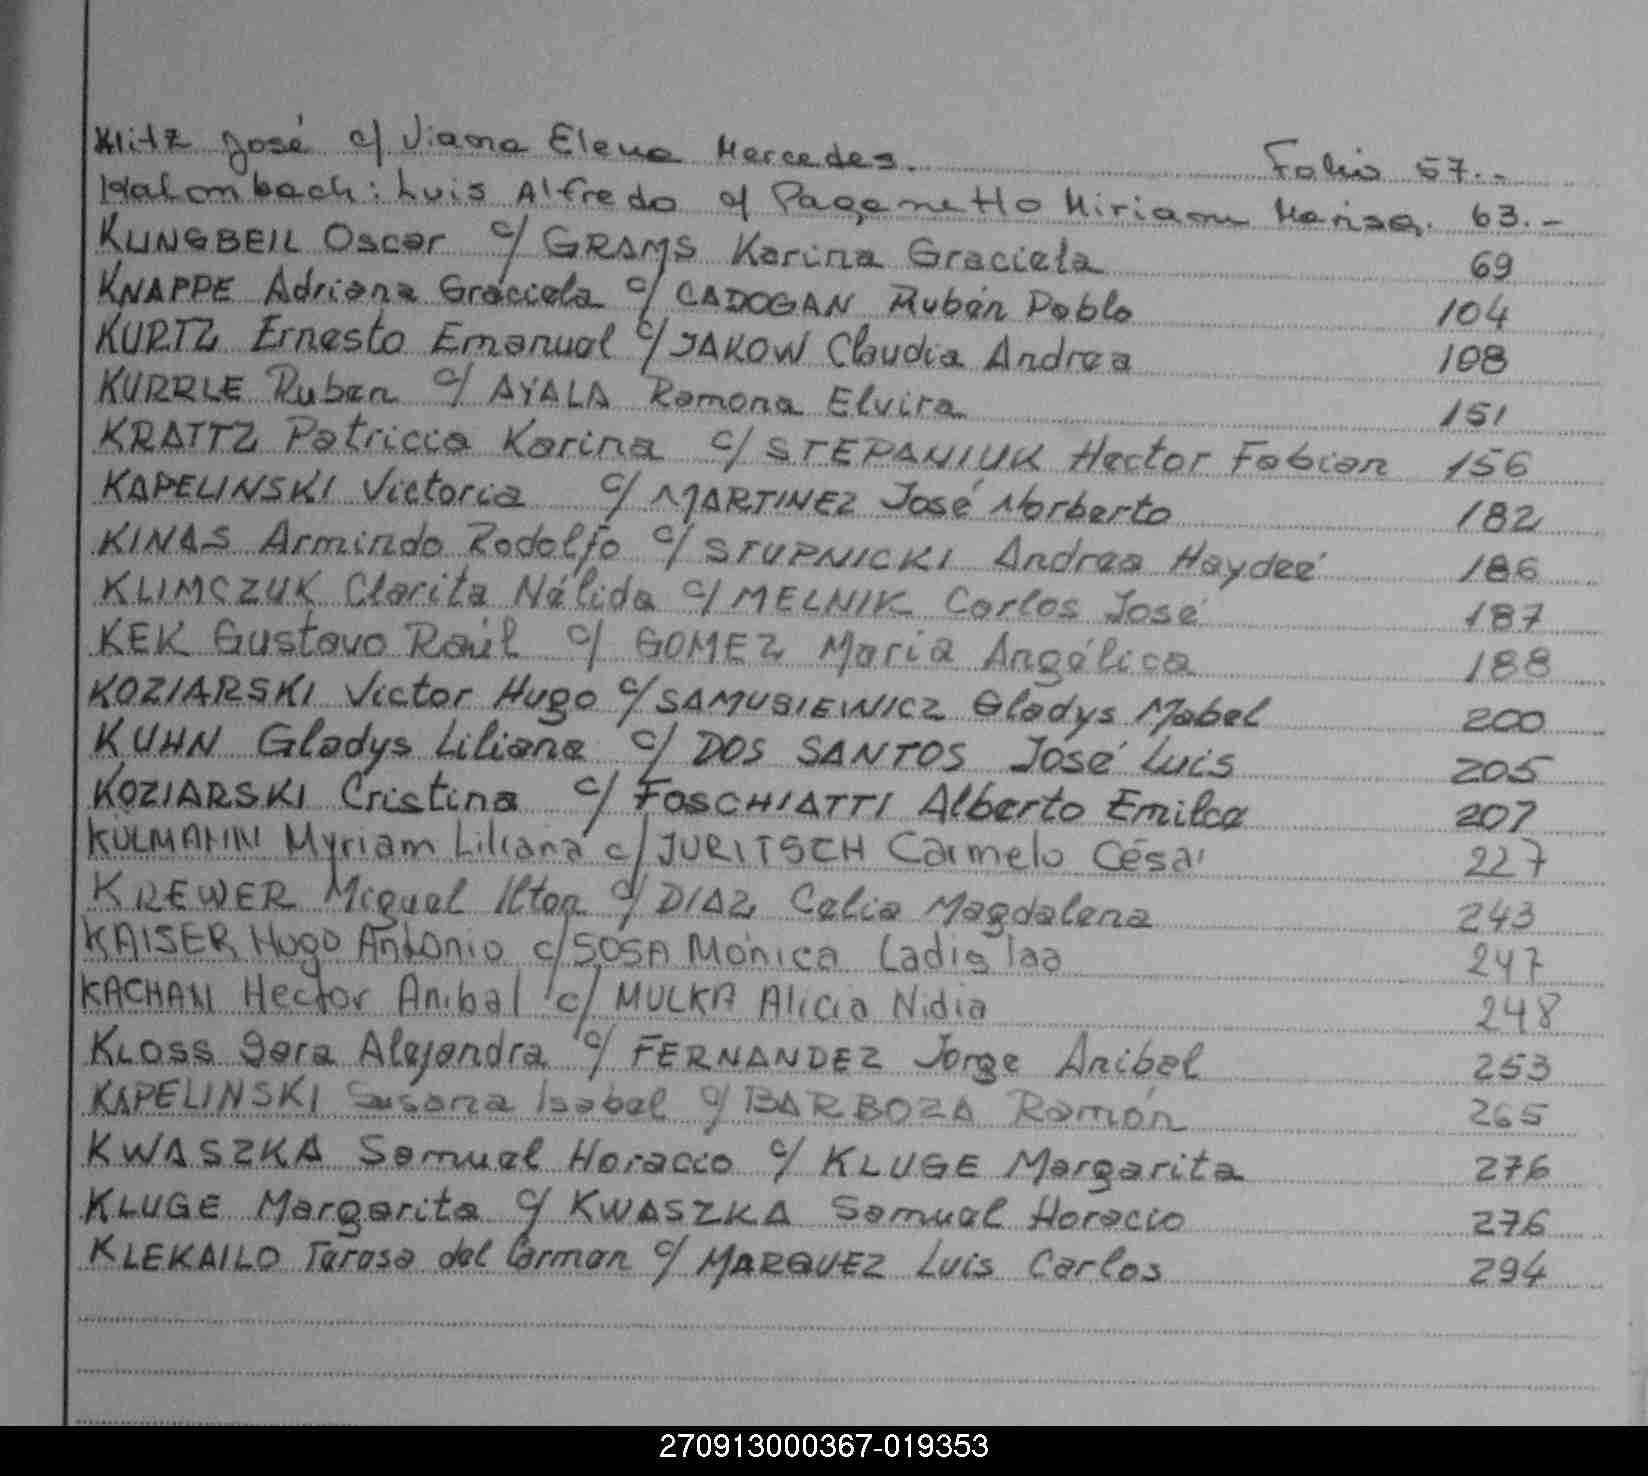 Klitz José c/ Viana Elena Mercedes. Folio 57.-
Kalombach: Luis Alfredo c/ Paganetto Miriam Marisa. 63.-
KLINGBEIL Oscar c/ GRAMS Karina Graciela 69
KNAPPE Adriana Graciela c/ CADOGAN Rubén Pablo 104
KURTZ Ernesto Emanuel c/ JAKOW Claudia Andrea 108
KURRLE Ruben c/ AYALA Ramona Elvira 151
KRATTZ Patricia Karina c/ STEPANIUK Hector Fabian 156
KAPELINSKI Victoria c/ MARTINEZ José Norberto 182
KINAS Armindo Rodolfo c/ STUPNICKI Andrea Haydeé 186
KLIMCZUK Clarita Nélida c/ MELNIK Carlos José 187
KEK Gustavo Raúl c/ GOMEZ Maria Angélica 188
KOZIARSKI Victor Hugo c/ SAMUSIEWICZ Gladys Mabel 200
KUHN Gladys Liliana c/ DOS SANTOS José Luis 205
KOZIARSKI Cristina c/ FOSCHIATTI Alberto Emilce 207
KULMANN Myriam Liliana c/ JURITSCH Carmelo César 227
KREWER Miguel Ilton c/ DIAZ Celia Magdalena 243
KAISER Hugo Antonio c/ SOSA Mónica Ladislaa 247
KACHAN Hector Anibal c/ MULKA Alicia Nidia 248
KLOSS Sara Alejandra c/ FERNANDEZ Jorge Anibal 253
KAPELINSKI Susana Isabel c/ BARBOZA Ramón 265
KWASZKA Samuel Horacio c/ KLUGE Margarita 276
KLUGE Margarita c/ KWASZKA Samuel Horacio 276
KLEKAILO Teresa del Carmen c/ MARQUEZ Luis Carlos 294
270913000367-019353